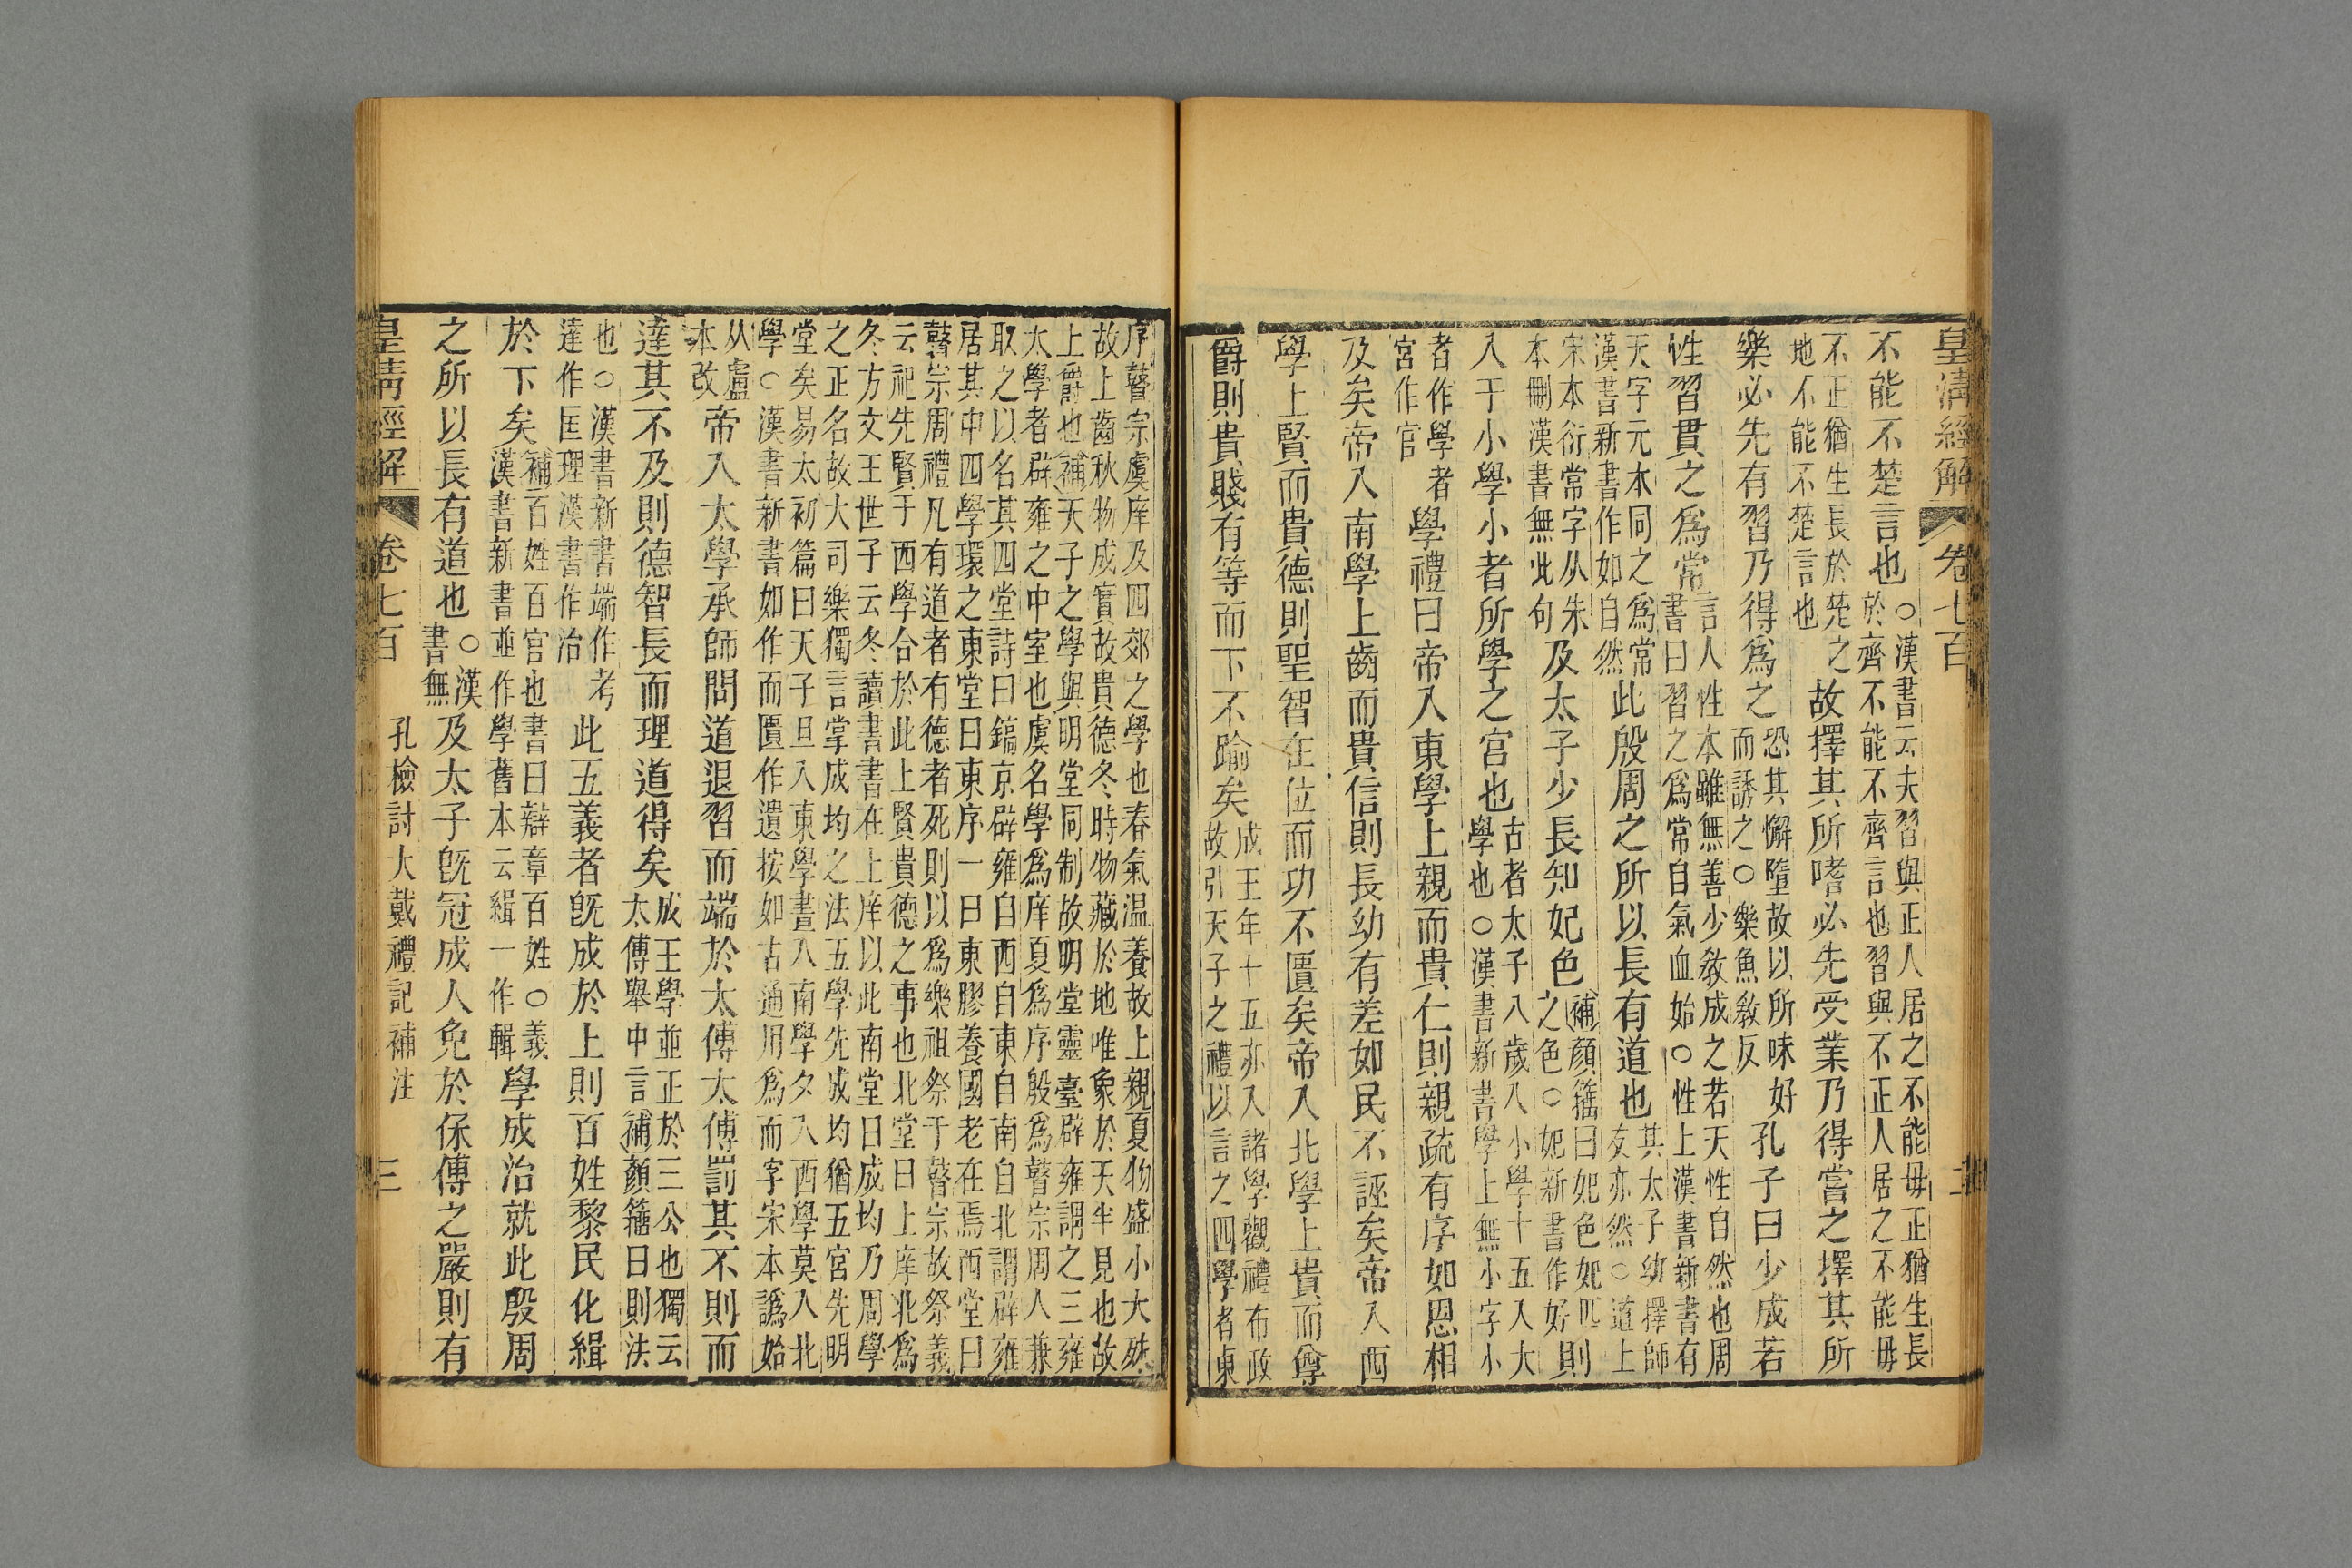 皇清經解 卷七百 二
不能不楚言也○漢書云夫習與正人居之不能毋正猶生長
於齊不能不齊言也習與不正人居之不能毋
不正猶生長於楚之
地不能不楚言也故擇其所嗜必先受業乃得嘗之擇其所
樂必先有習乃得爲之恐其懈墮故以所味好
而誘之○樂魚敎反孔子曰少成若
性習貫之爲常言人性本雖無善少敎成之若天性自然也周
書曰習之爲常自氣血始○性上漢書新書有
天字元本同之爲常
漢書新書作如自然此殷周之所以長有道也其太子幼擇師
友亦然○道上
宋本衍常字从朱
本刪漢書無此句及太子少長知妃色補顏籀曰妃色妃匹
之色○妃新書作好則
入于小學小者所學之宮也古者太子八歲入小學十五入大
學也○漢書新書學上無小字小
者作學者
宮作官學禮曰帝入東學上親而貴仁則親疏有序如恩相
及矣帝入南學上齒而貴信則長幼有差如民不誣矣帝入西
學上賢而貴德則聖智在位而功不匱矣帝入北學上貴而尊
爵則貴賤有等而下不踰矣成王年十五亦入諸學觀禮布政
故引天子之禮以言之四學者東
序瞽宗虞庠及四郊之學也春氣温養故上親夏物盛小大殊
故上齒秋物成實故貴德冬時物藏於地唯象於天半見也故
上爵也補天子之學與明堂同制故明堂靈臺辟雍謂之三雍
太學者辟雍之中室也虞名學爲庠夏爲序殷爲瞽宗周人兼
取之以名其四堂詩曰鎬京辟雍自西自東自南自北謂辟雍
居其中四學環之東堂曰東序一曰東膠養國老在焉西堂曰
瞽宗周禮凡有道者有德者死則以爲樂祖祭于瞽宗故祭義
云祀先賢于西學合於此上賢貴德之事也北堂曰上庠北爲
冬方文王世子云冬讀書書在上庠以此南堂曰成均乃周學
之正名故大司樂獨言掌成均之法五學先成均猶五宮先明
堂矣易太初篇曰天子旦入東學晝入南學夕入西學莫入北
學○漢書新書如作而匱作遺按如古通用爲而字宋本譌始
从盧
本改帝入太學承師問道退習而端於太傅太傅罰其不則而
達其不及則德智長而理道得矣成王學並正於三公也獨云
太傅舉中言補顏籀曰則法
也○漢書新書端作考
達作匡理漢書作治此五義者旣成於上則百姓黎民化緝
於下矣補百姓百官也書曰辯章百姓○義
漢書新書並作學舊本云緝一作輯學成治就此殷周
之所以長有道也○漢
書無及太子旣冠成人免於保傅之嚴則有
皇清經解 卷七百 孔檢討大戴禮記補注 三